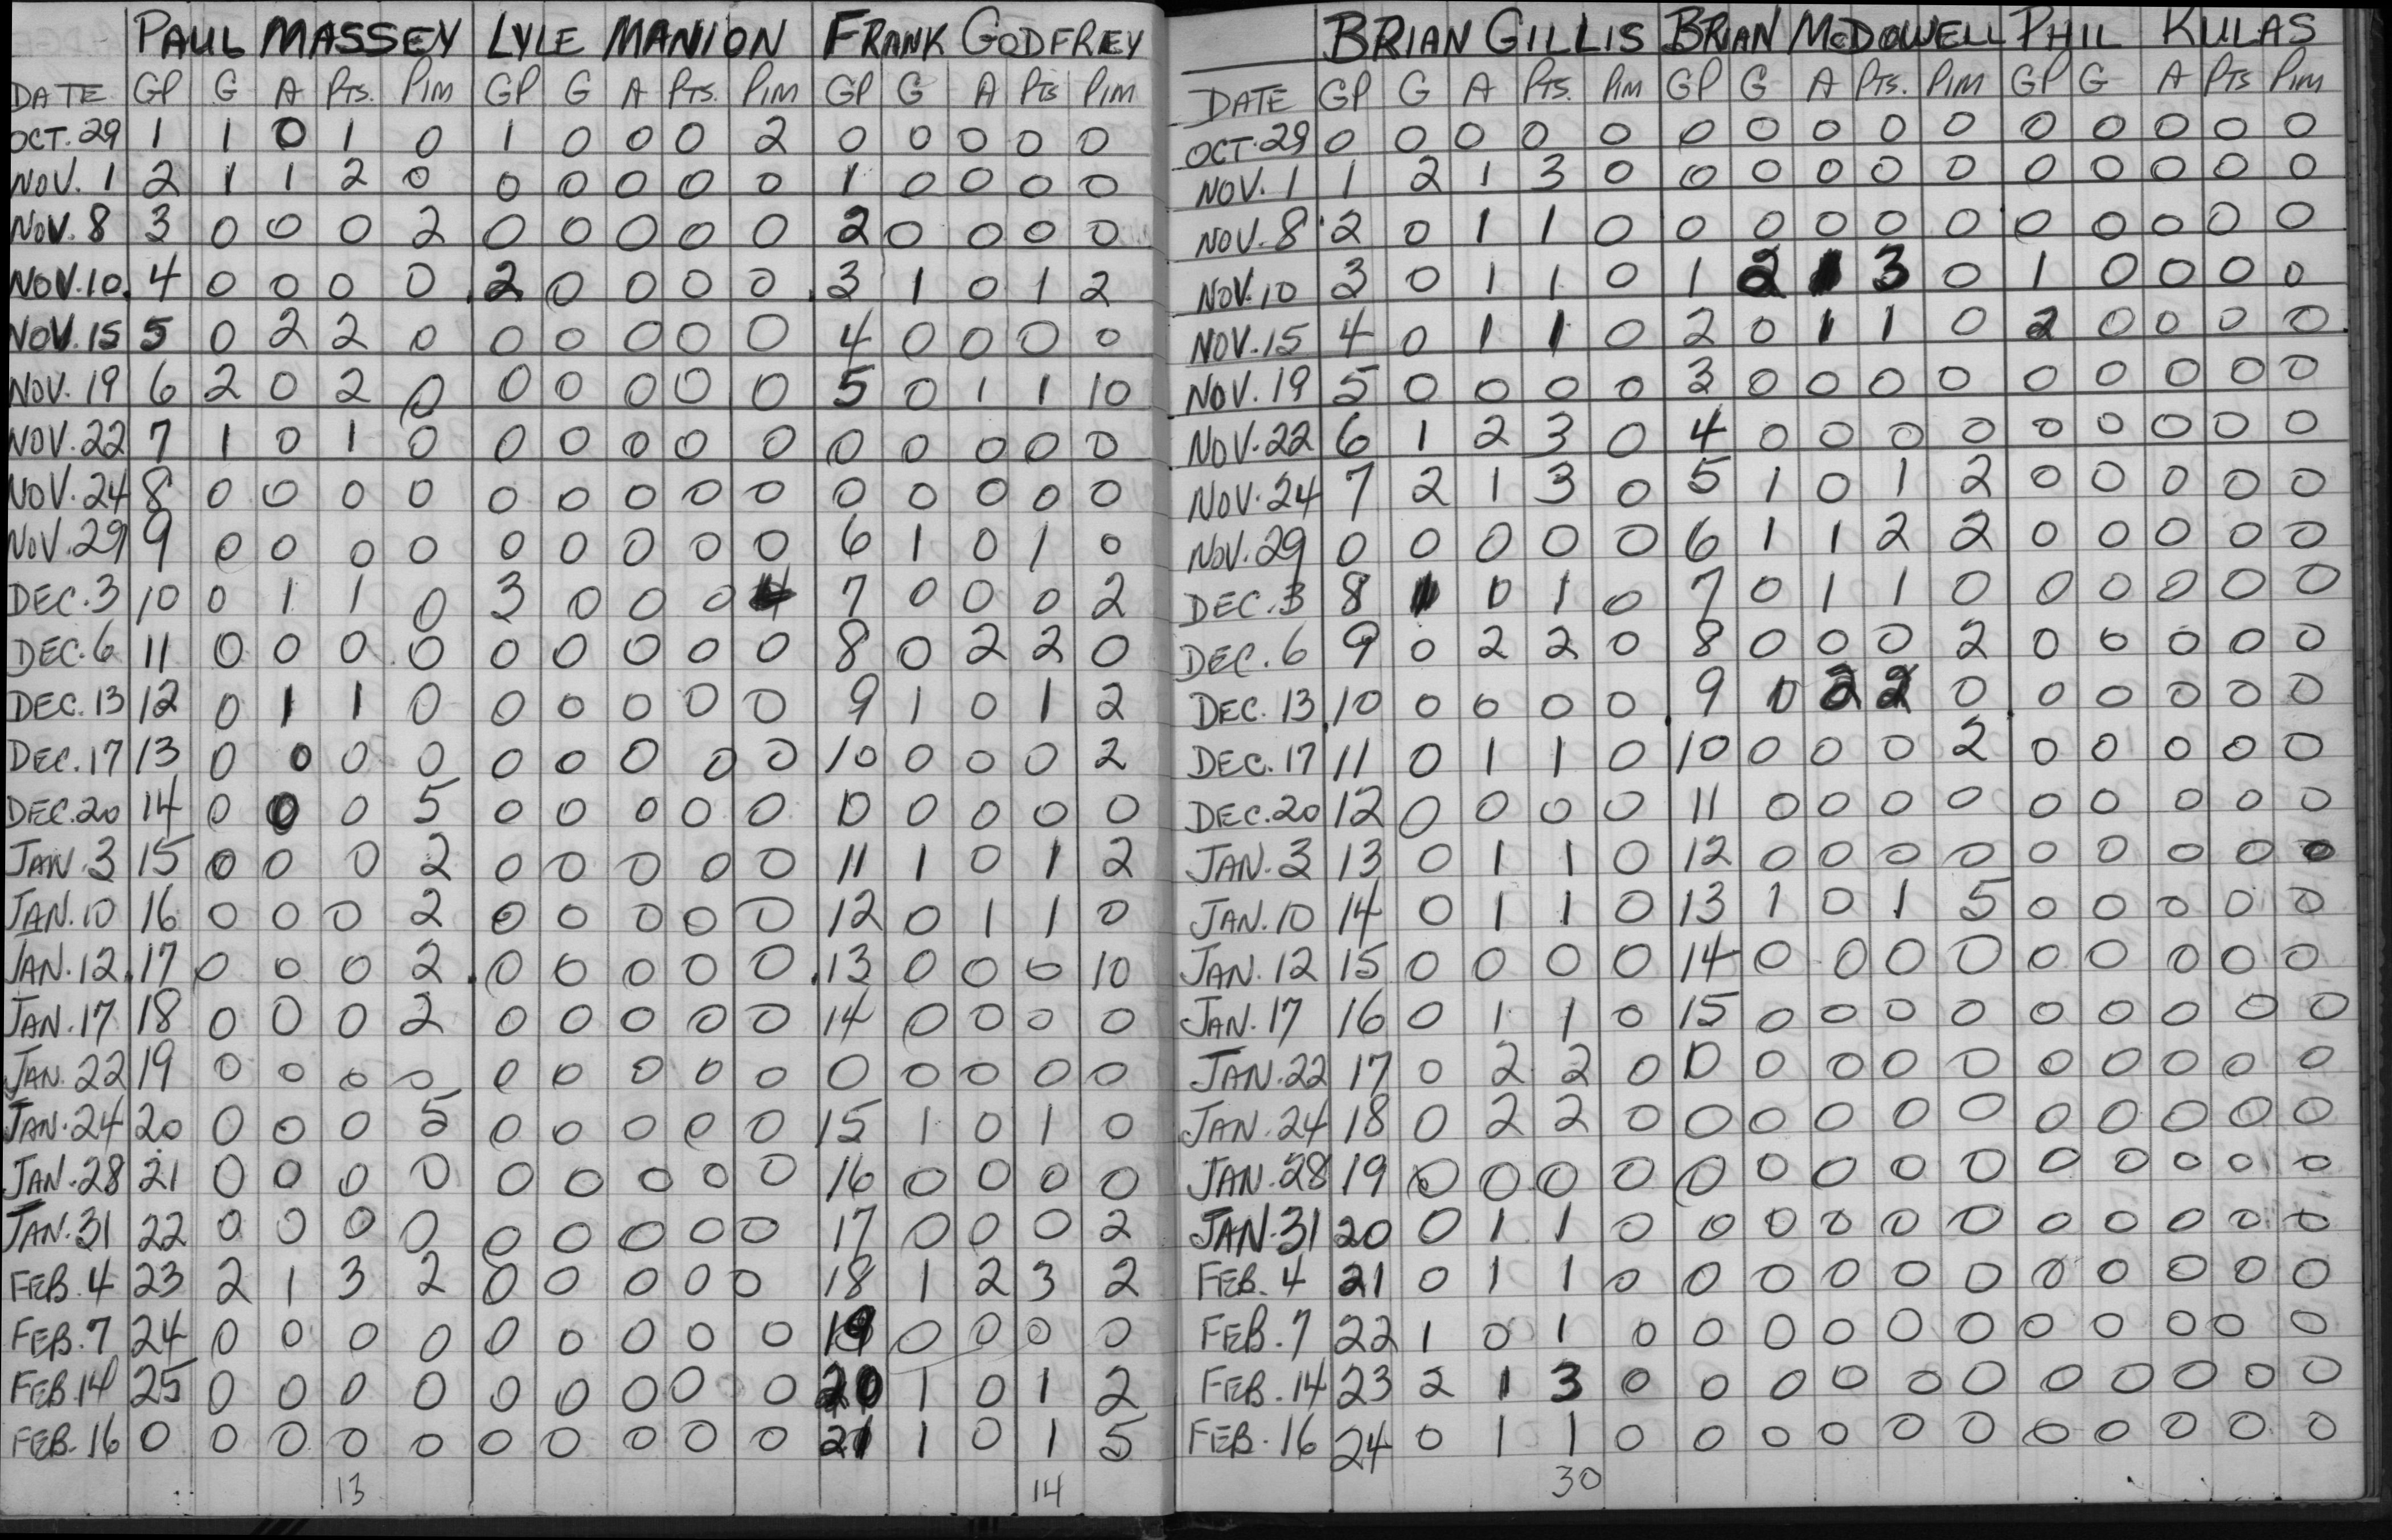 PAUL MASSEY LYLE MANION FRANK GODFREY
DATE GP G A PTS. PIM GP G A PTS. PIM GP G A PTS PIM
OCT. 29 1 1 0 1 0 1 0 0 0 2 0 0 0 0 0
NOV. 1 2 1 1 2 0 0 0 0 0 0 1 0 0 0 0
NOV. 8 3 0 0 0 2 0 0 0 0 0 2 0 0 0 0
NOV. 10. 4 0 0 0 0 2 0 0 0 0 3 1 0 1 2
NOV. 15 5 0 2 2 0 0 0 0 0 0 4 0 0 0 0
NOV. 19 6 2 0 2 0 0 0 0 0 0 5 0 1 1 10
NOV. 22 7 1 0 1 0 0 0 0 0 0 0 0 0 0 0
NOV. 24 8 0 0 0 0 0 0 0 0 0 0 0 0 0 0
NOV. 29 9 0 0 0 0 0 0 0 0 0 6 1 0 1 0
DEC. 3 10 0 1 1 0 3 0 0 0 4 7 0 0 0 2
DEC. 6 11 0 0 0 0 0 0 0 0 0 8 0 2 2 0
DEC. 13 12 0 1 1 0 0 0 0 0 0 9 1 0 1 2
DEC. 17 13 0 0 0 0 0 0 0 0 0 10 0 0 0 2
DEC. 20 14 0 0 0 5 0 0 0 0 0 0 0 0 0 0
JAN. 3 15 0 0 0 2 0 0 0 0 0 11 1 0 1 2
JAN. 10 16 0 0 0 2 0 0 0 0 0 12 0 1 1 0
JAN. 12. 17 0 0 0 2 0 0 0 0 0 13 0 0 0 10
JAN. 17 18 0 0 0 2 0 0 0 0 0 14 0 0 0 0
JAN. 22 19 0 0 0 0 0 0 0 0 0 0 0 0 0 0
JAN. 24 20 0 0 0 5 0 0 0 0 0 15 1 0 1 0
JAN. 28 21 0 0 0 0 0 0 0 0 0 16 0 0 0 0
JAN. 31 22 0 0 0 0 0 0 0 0 0 17 0 0 0 2
FEB. 4 23 2 1 3 2 0 0 0 0 0 18 1 2 3 2
FEB. 7 24 0 0 0 0 0 0 0 0 0 19 0 0 0 0
FEB. 14 25 0 0 0 0 0 0 0 0 0 20 1 0 1 2
FEB. 16 0 0 0 0 0 0 0 0 0 0 21 1 0 1 5
13 14
BRIAN GILLIS BRIAN McDOWELL PHIL KULAS
DATE GP G A PTS. PIM GP G A PTS. PIM GP G A PTS PIM
OCT. 29 0 0 0 0 0 0 0 0 0 0 0 0 0 0 0
NOV. 1 1 2 1 3 0 0 0 0 0 0 0 0 0 0 0
NOV. 8 2 0 1 1 0 0 0 0 0 0 0 0 0 0 0
NOV. 10 3 0 1 1 0 1 2 1 3 0 1 0 0 0 0
NOV. 15 4 0 1 1 0 2 0 1 1 0 2 0 0 0 0
NOV. 19 5 0 0 0 0 3 0 0 0 0 0 0 0 0 0
NOV. 22 6 1 2 3 0 4 0 0 0 0 0 0 0 0 0
NOV. 24 7 2 1 3 0 5 1 0 1 2 0 0 0 0 0
NOV. 29 0 0 0 0 0 6 1 1 2 2 0 0 0 0 0
DEC. 3 8 1 0 1 0 7 0 1 1 0 0 0 0 0 0
DEC. 6 9 0 2 2 0 8 0 0 0 2 0 0 0 0 0
DEC. 13 10 0 0 0 0 9 0 2 2 0 0 0 0 0 0
DEC. 17 11 0 1 1 0 10 0 0 0 2 0 0 0 0 0
DEC. 20 12 0 0 0 0 11 0 0 0 0 0 0 0 0 0
JAN. 3 13 0 1 1 0 12 0 0 0 0 0 0 0 0 0
JAN. 10 14 0 1 1 0 13 1 0 1 5 0 0 0 0 0
JAN. 12 15 0 0 0 0 14 0 0 0 0 0 0 0 0 0
JAN. 17 16 0 1 1 0 15 0 0 0 0 0 0 0 0 0
JAN. 22 17 0 2 2 0 0 0 0 0 0 0 0 0 0 0
JAN. 24 18 0 2 2 0 0 0 0 0 0 0 0 0 0 0
JAN. 28 19 0 0 0 0 0 0 0 0 0 0 0 0 0 0
JAN. 31 20 0 1 1 0 0 0 0 0 0 0 0 0 0 0
FEB. 4 21 0 1 1 0 0 0 0 0 0 0 0 0 0 0
FEB. 7 22 1 0 1 0 0 0 0 0 0 0 0 0 0 0
FEB. 14 23 2 1 3 0 0 0 0 0 0 0 0 0 0 0
FEB. 16 24 0 1 1 0 0 0 0 0 0 0 0 0 0 0
30